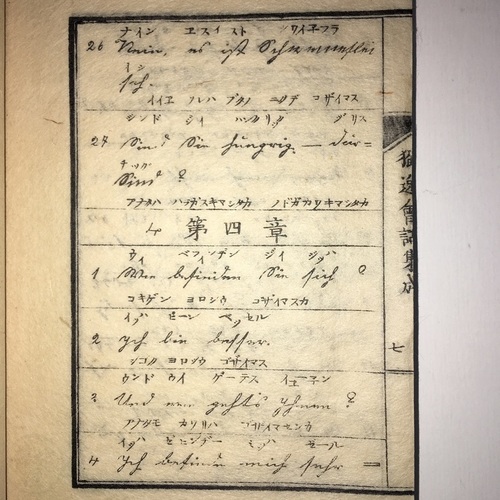 ナイン エス イスト
26 Nein, es ist Schweineflei
sch.
イイエ ソレハ ブタノ ニクデ コザイマス
シンド ジイ ハンガリッグ
27 Sind Sie hungrig — dur=
stig ?
アナタハ ハラガスキマシタカ ノドガカワキマシタカ
第四章
ウィ ベフィンデン ジイ ジッヒ
1 Wie befinden Sie sich ?
コキゲン ヨロシウ コザイマスカ
イッヒ ビーン ベッセル
2 Ich bin besser.
スコシ ヨロシウ ゴザイマス
ウンド ウイ ゲーテス イーネン
3 Und wie geht's Ihnen ?
アナタモ ゴザイマセンカ
イッヒ ベヒンデー ミッヒ ゼール
4 Ich befinde mich sehr =
獨逸會話篇
七